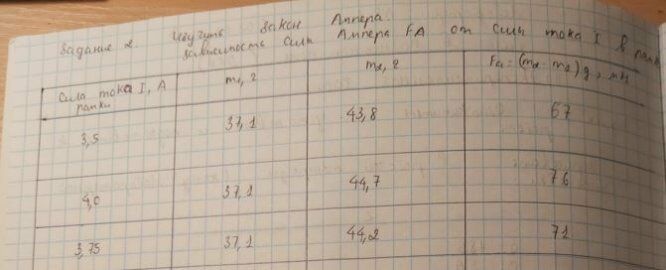 Задание 2. Изучить закон Ампера.
зависимость силы Ампера FA от силы тока I в рамке
Сила тока I, А m₁, г m₂, г FA = (m₂ - m₁)g, мН
рамки
3,5 37,1 43,8 67
4,0 37,1 44,7 76
3,75 37,1 44,2 71